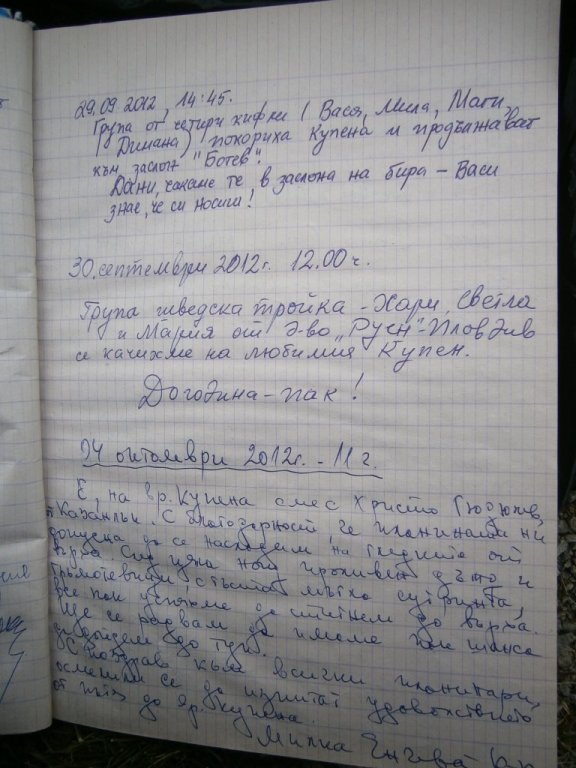 29.09.2012, 14:45.
Група от четири кифли (Вася, Мила, Маги,
Димана) покориха Купена и продължават
към заслон "Ботев".
Дани, чакаме те в заслона на бира – Васи
знае, че си носиш!
30.септември 2012г. 12.00ч.
Група шведска тройка – Хари, Светла
и Мария от Д-во „Руен"-Пловдив
се качихме на любимия Купен.
Догодина – пак!
04 октомври 2012г. - 11 г.
Е, на вр. Купена смес Христо
от Казанлък. С благодарност, че планината ни
допусна да се насладим на гледките от
върха. След една нощ проливен дъжд и
гръмотевици, гъста мъгла сутринта,
все пак успяхме да стигнем до върха.
Ще се радвам да имаме пак шанса
да дойдем до тук.
С поздрав към всички планинари,
осмелили се да изпитат удоволствието
от пътя до вр. Купена.
Милка Енчева